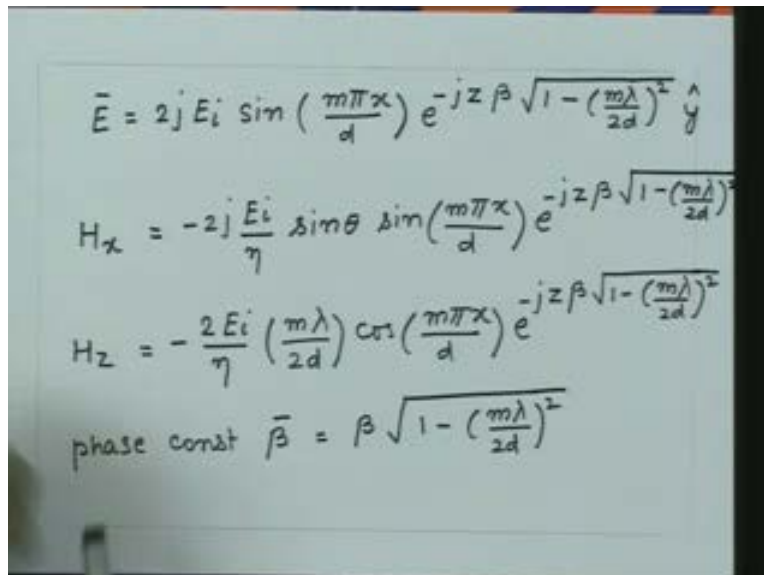 Ē = 2j Eᵢ sin(mπx/d) e^{-jzβ√(1-(mλ/2d)²)} ŷ
Hₓ = -2j Eᵢ/η sinθ sin(mπx/d) e^{-jzβ√(1-(mλ/2d)²)}
H_z = -2Eᵢ/η (mλ/2d) cos(mπx/d) e^{-jzβ√(1-(mλ/2d)²)}
phase const β̄ = β√(1-(mλ/2d)²)